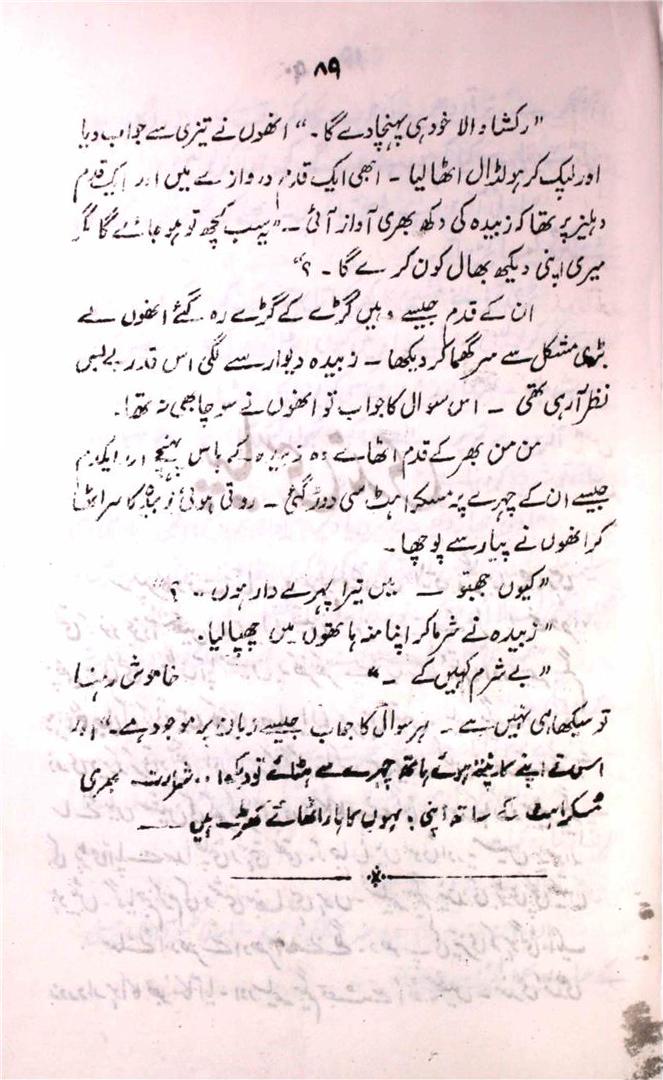 ۸۹
"رکشا والا خود ہی پہنچا دے گا۔" انھوں نے تیزی سے جواب دیا
اور لپک کر ہولڈال اٹھا لیا ۔ ابھی ایک قدم دروازے میں اور ایک قدم
دہلیز پر تھا کہ زبیدہ کی دکھ بھری آواز آئی ۔ "یہ سب کچھ تو ہو جائے گا مگر
میری اپنی دیکھ بھال کون کرے گا ۔ ؟"
ان کے قدم جیسے وہیں گڑے کے گڑے رہ گئے انھوں نے
بڑی مشکل سے سر گھما کر دیکھا ۔ زبیدہ دیوار سے لگی اس قدر بے بس
نظر آرہی تھی ۔ اس سوال کا جواب تو انھوں نے سوچا بھی نہ تھا۔
من من بھر کے قدم اٹھاتے وہ زبیدہ کے پاس پہنچے اور ایکدم
جیسے ان کے چہرے پہ مسکراہٹ سی دوڑ گئی ۔ روتی ہوئی زبیدہ کا سر اٹھا
کر انھوں نے پیار سے پوچھا ۔
"کیوں جھبتو ۔ میں تیرا پہرے دار ہوں ۔ ؟"
"زبیدہ نے شرما کر اپنا منہ ہاتھوں میں چھپا لیا۔
"بے شرم کہیں کے ۔" خاموش رہنا
تو سیکھا ہی نہیں ہے ۔ ہر سوال کا جواب جیسے زبان پر موجود ہے ۔" اور
اس نے اپنے کانپتے ہوئے ہاتھ چہرے سے ہٹائے تو دیکھا ۔۔ شرارت بھری
مسکراہٹ کے ساتھ اپنی کا ہار اٹھائے کھڑے ہیں